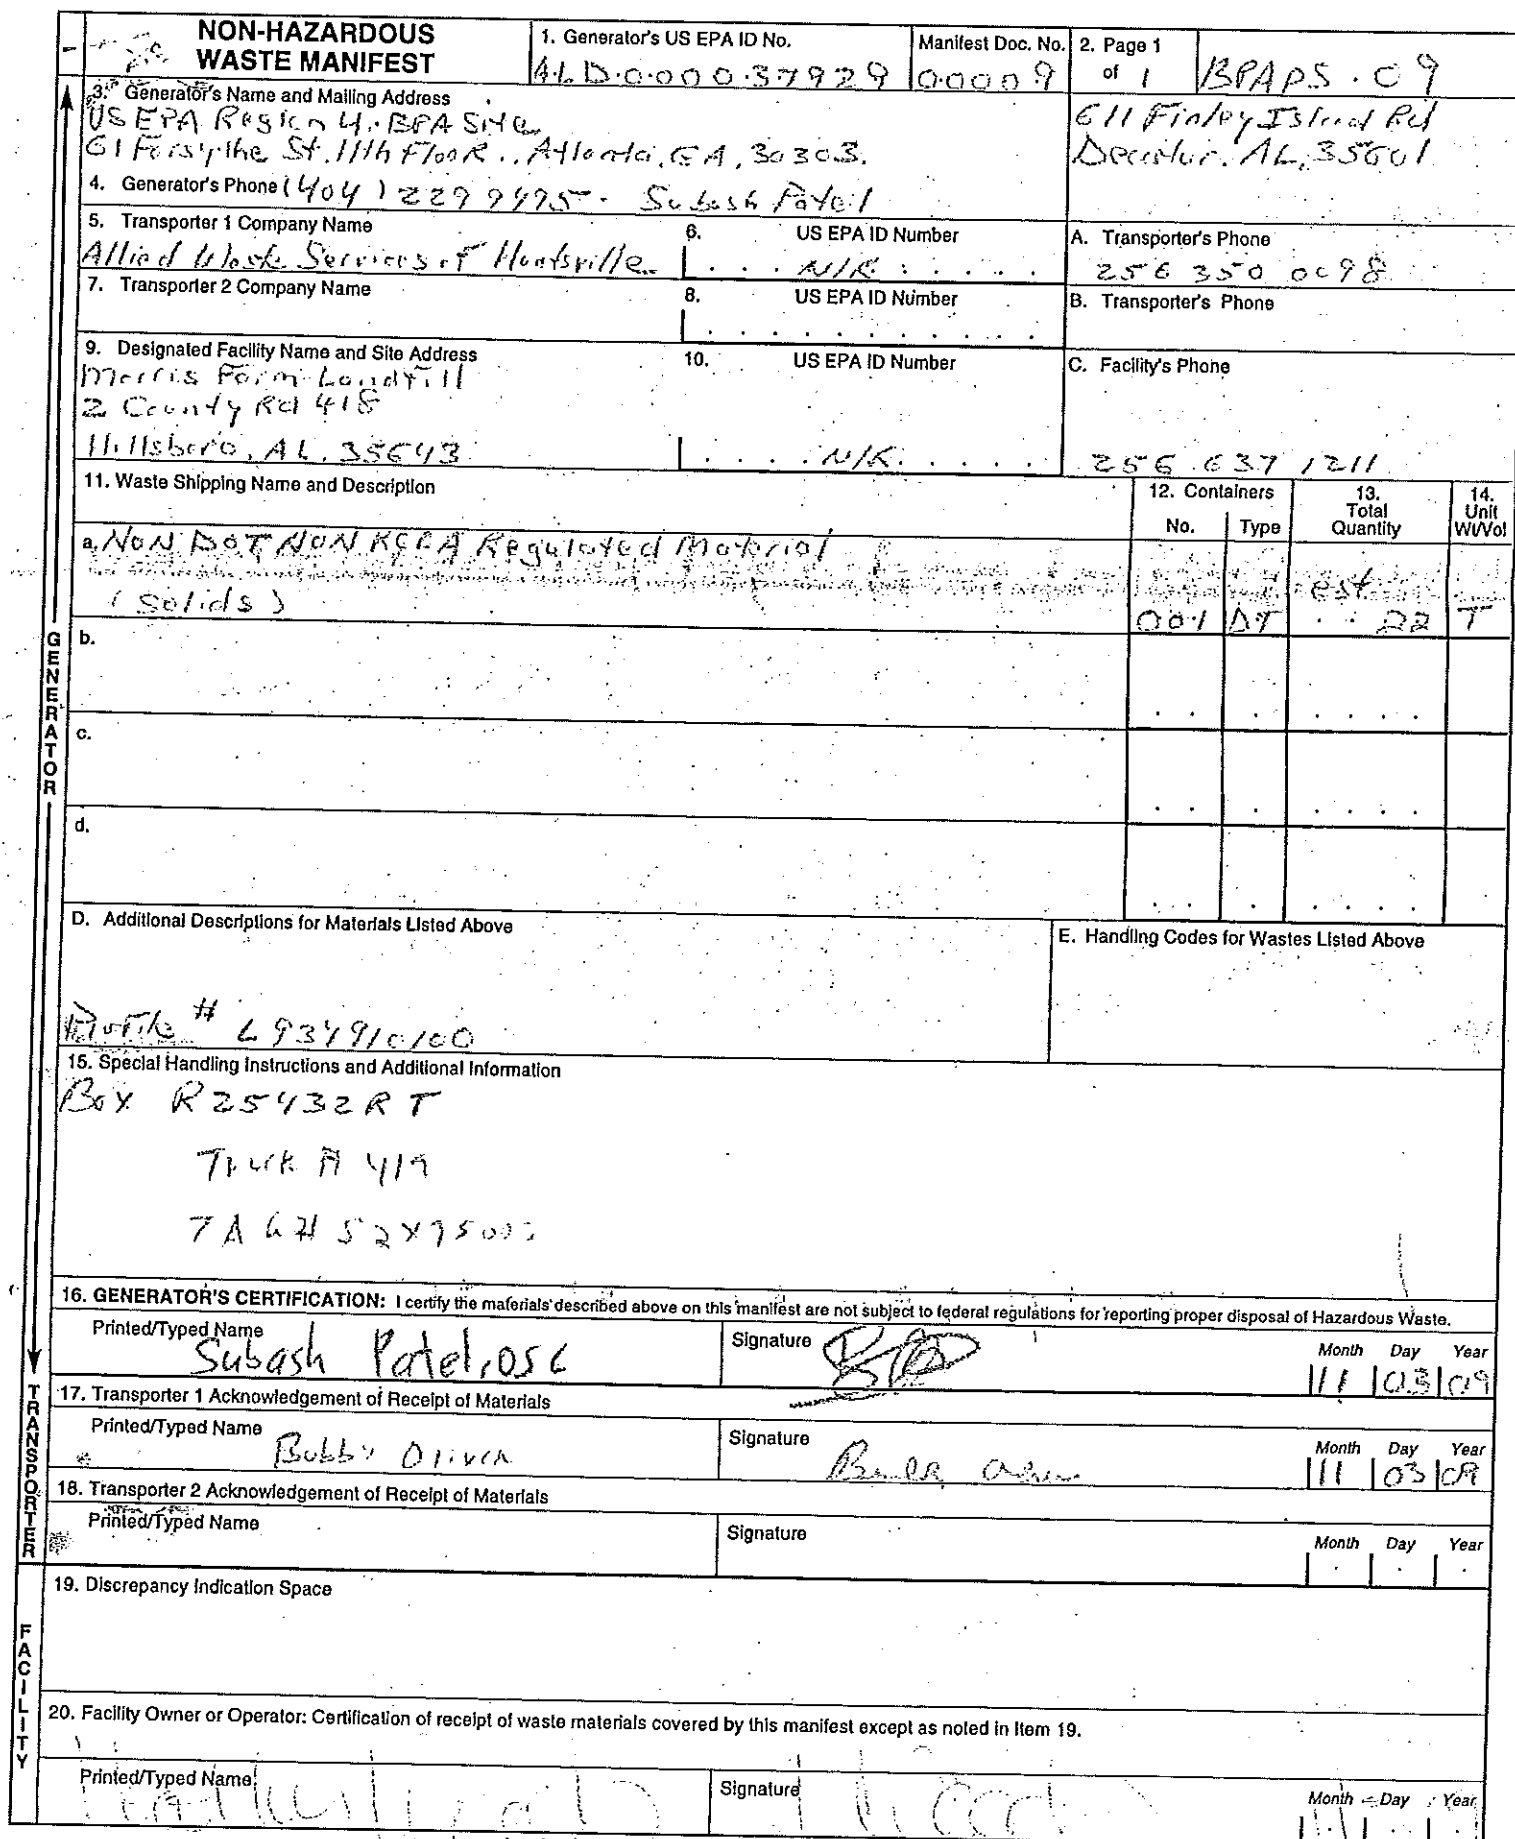 NON-HAZARDOUS
WASTE MANIFEST
1. Generator's US EPA ID No.
A.L.D.0.0.0.0.3.7.9.2.9
Manifest Doc. No.
0.0.0.0.9
2. Page 1
of 1
BPAPS.09
3. Generator's Name and Mailing Address
US EPA Region 4. BPA Site
61 Forsythe St. 11th Floor.. Atlanta, GA, 30303.
611 Finley Island Rd
Decatur, AL, 35601
4. Generator's Phone (404) 229 9495 - Subash Patel
5. Transporter 1 Company Name
Allied Waste Services of Huntsville
6. US EPA ID Number
N/R
A. Transporter's Phone
256 350 0098
7. Transporter 2 Company Name
8. US EPA ID Number
B. Transporter's Phone
9. Designated Facility Name and Site Address
Morris Farm Landfill
2 County Rd 418
Hillsboro, AL. 35643
10. US EPA ID Number
N/R
C. Facility's Phone
256 637 1211
11. Waste Shipping Name and Description
12. Containers
No.
Type
13.
Total
Quantity
14.
Unit
Wt/Vol
a. NON DOT NON RCRA Regulated Material
(Solids)
001 DT
est
22 T
b.
c.
d.
D. Additional Descriptions for Materials Listed Above
E. Handling Codes for Wastes Listed Above
Profile # L934910100
15. Special Handling Instructions and Additional Information
Box R25432RT
Truck # 419
TAG#
16. GENERATOR'S CERTIFICATION: I certify the materials described above on this manifest are not subject to federal regulations for reporting proper disposal of Hazardous Waste.
Printed/Typed Name
Subash Patel, OSC
Signature
Month Day Year
11 03 09
17. Transporter 1 Acknowledgement of Receipt of Materials
Printed/Typed Name
Bobby
Signature
Month Day Year
11 03 09
18. Transporter 2 Acknowledgement of Receipt of Materials
Printed/Typed Name
Signature
Month Day Year
19. Discrepancy Indication Space
20. Facility Owner or Operator: Certification of receipt of waste materials covered by this manifest except as noted in Item 19.
Printed/Typed Name
Signature
Month Day Year
GENERATOR
TRANSPORTER
FACILITY